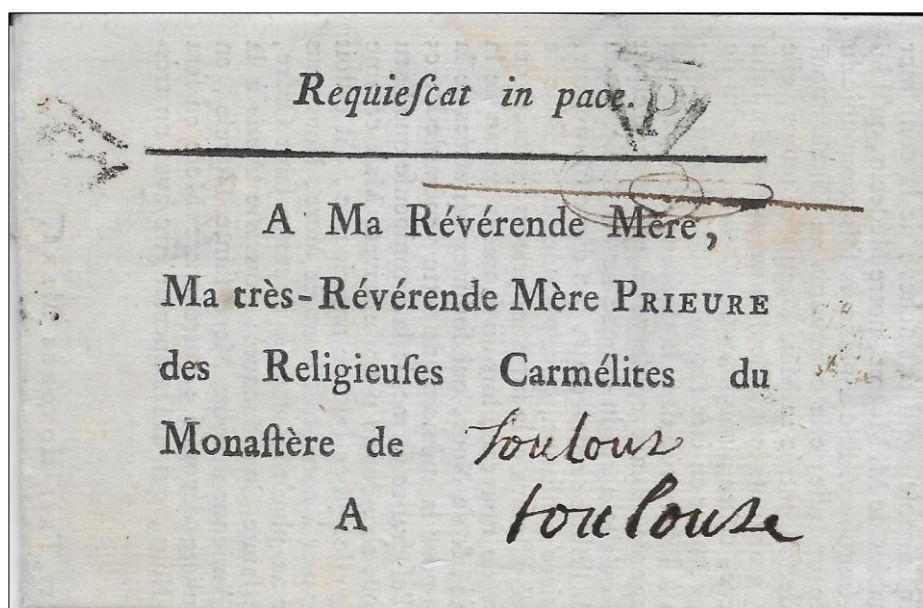 Requieſcat in pace.
P
A Ma Révérende Mère,
Ma très-Révérende Mère PRIEURE
des Religieuſes Carmélites du
Monaſtère de Toulous
A toulouse